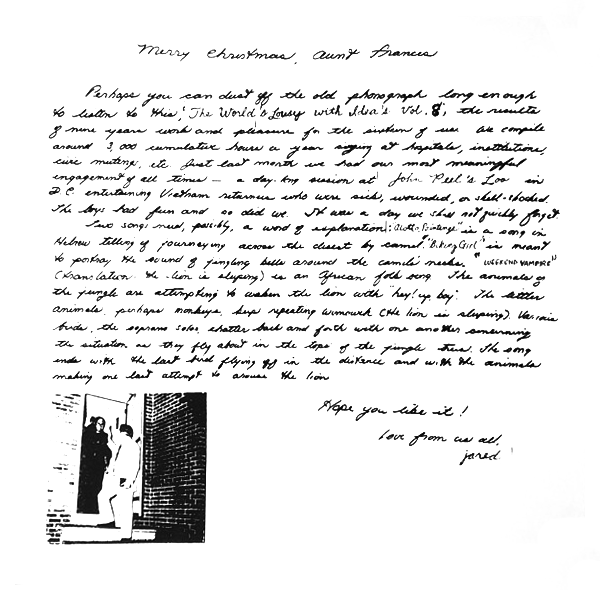 Merry Christmas, Aunt Frances
Perhaps you can dust off the old phonograph long enough
to listen to this, "The World's Lousy with Idea's Vol. 8", the results
of nine years work and pleasure for the sixteen of us. We compile
around 3,000 cumulative hours a year singing at hospitals, institutions,
cure meetings, etc. Just last month we had our most meaningful
engagement of all times — a day-long session at John Peel's Loo in
D.C. entertaining Vietnam returnees who were sick, wounded, or shell-shocked.
The boys had fun and so did we. It was a day we shall not quickly forget
Two songs need, possibly, a word of explanation: " " is a song in
Hebrew telling of journeying across the desert by camel. "Biking Girl" is meant
to portray the sound of jingling bells around the camels necks. "WEEKEND VAMPIRE"
(translation: the lion is sleeping) is an African folk song. The animals of
the jungle are attempting to waken the lion with "hey! up, boy". The littler
animals, perhaps monkeys, keep repeating wimoweh (the lion is sleeping). Various
birds, the soprano solos, chatter back and forth with one another concerning
the situation as they fly about in the tops of the jungle trees. The song
ends with the last bird flying off in the distance and with the animals
making one last attempt to arouse the lion
Hope you like it!
Love from us all,
jared